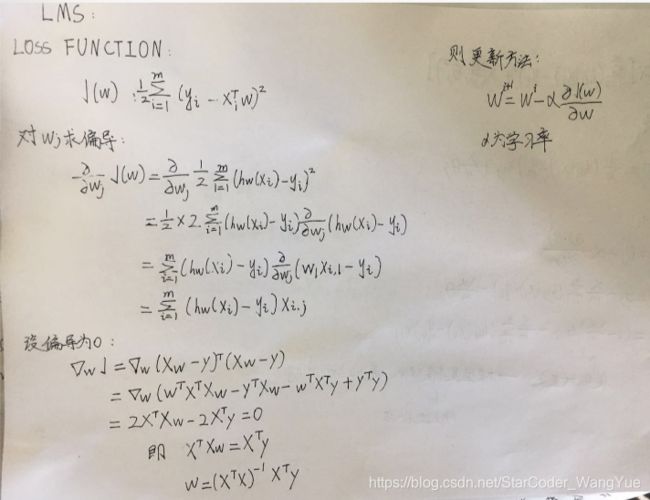 LMS:
LOSS FUNCTION:
J(w) : 1/2 ∑_{i=1}^{m} (y_i - x_i^T w)^2
对w_j求偏导:
∂/∂w_j J(w) = ∂/∂w_j 1/2 ∑_{i=1}^{m} (h_w(x_i) - y_i)^2
= 1/2 × 2 ∑_{i=1}^{m} (h_w(x_i) - y_i) ∂/∂w_j (h_w(x_i) - y_i)
= ∑_{i=1}^{m} (h_w(x_i) - y_i) ∂/∂w_j (w_1 x_{i,1} - y_i)
= ∑_{i=1}^{m} (h_w(x_i) - y_i) x_{i,j}
设偏导为0:
∇_w J = ∇_w (Xw - y)^T (Xw - y)
= ∇_w (w^T X^T X w - y^T X w - w^T X^T y + y^T y)
= 2X^T X w - 2X^T y = 0
即 X^T X w = X^T y
w = (X^T X)^{-1} X^T y
则更新方法:
w^{i+1} = w^i - α ∂J(w)/∂w
α为学习率
https://blog.csdn.net/StarCoder_WangYue